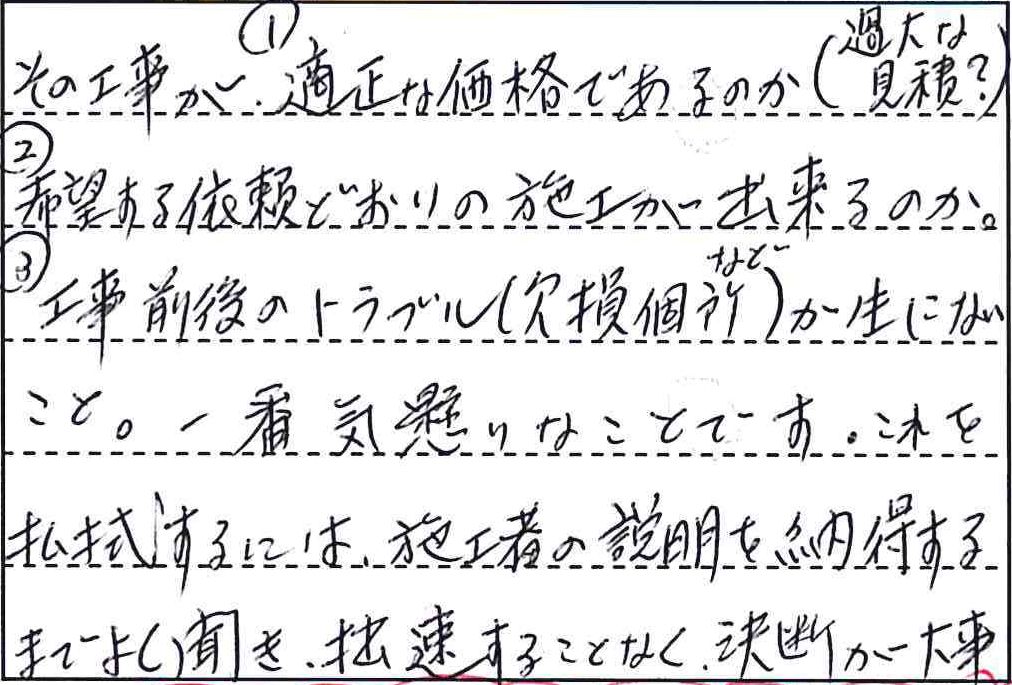 その工事が、①適正な価格であるのか(過大な見積?)
②希望する依頼どおりの施工が出来るのか。
③工事前後のトラブル(欠損個所など)が生じない
こと。一番気懸りなことです。これを
払拭するには、施工者の説明を納得する
までよく聞き、拙速することなく、決断が大事